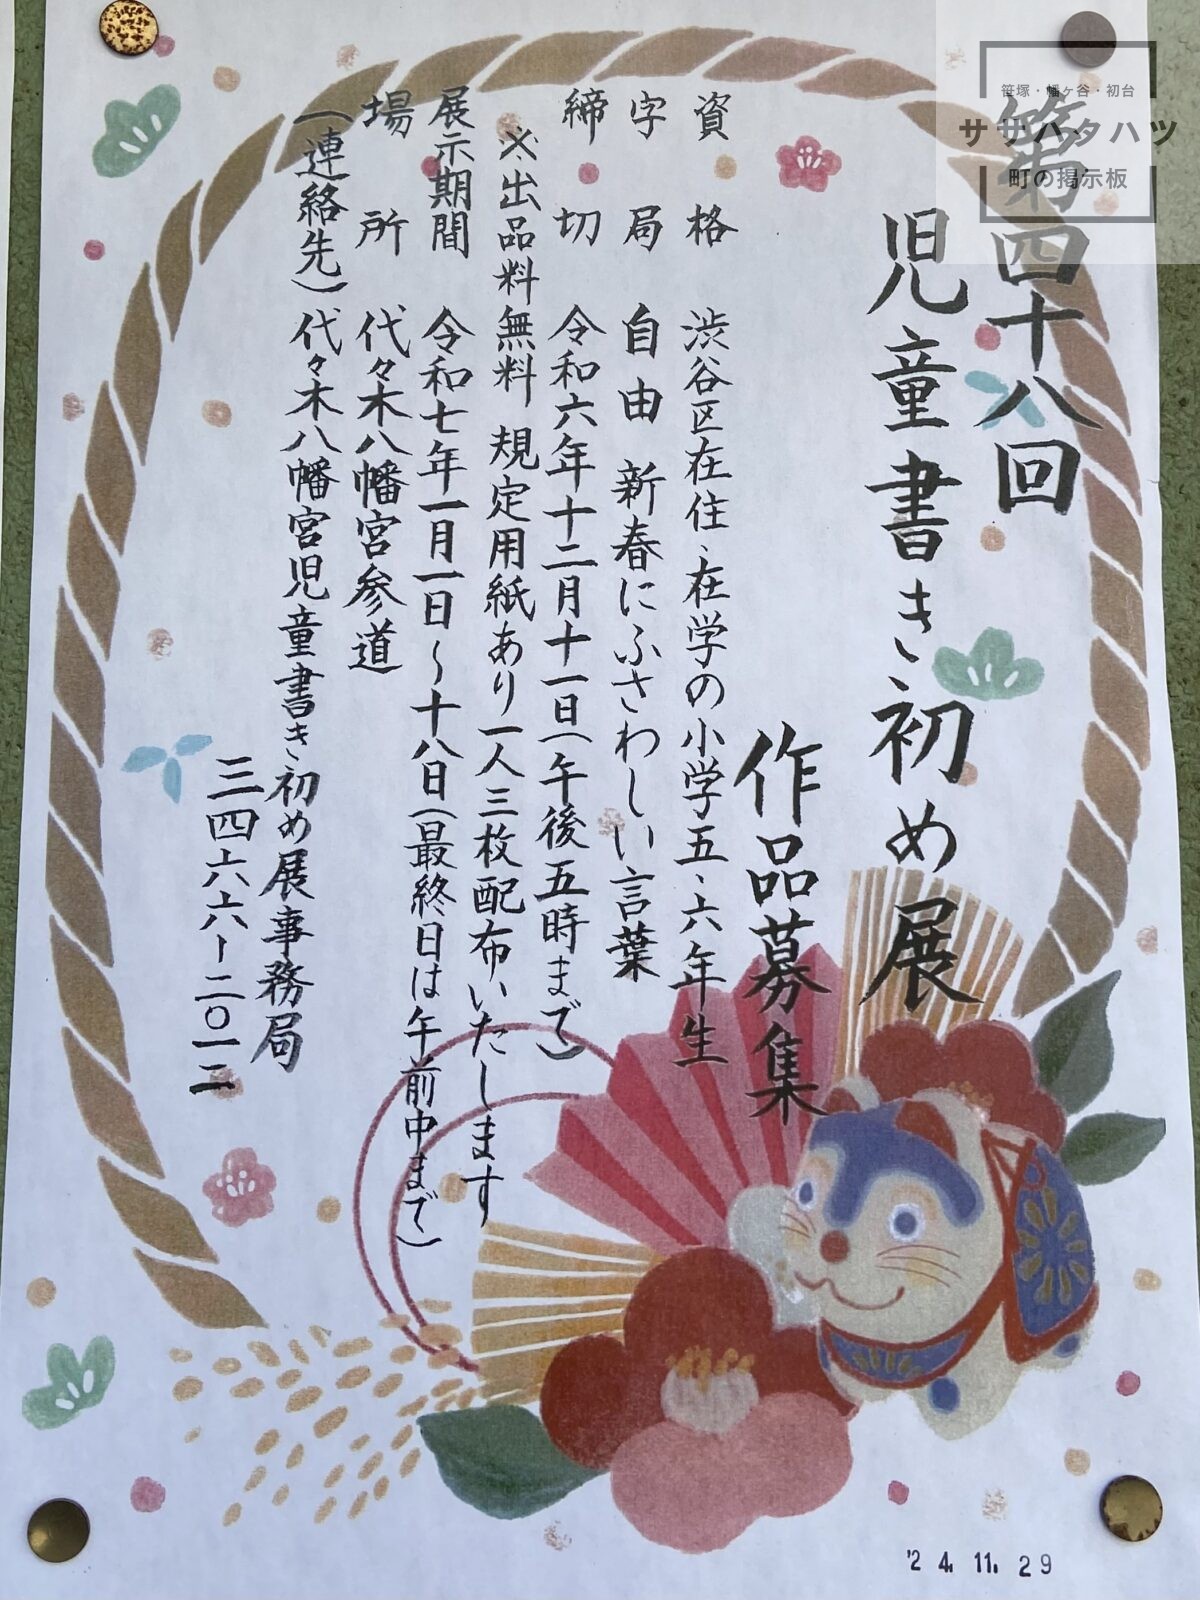 第四十八回
児童書き初め展
作品募集
資格 渋谷区在住、在学の小学五、六年生
字句 自由 新春にふさわしい言葉
締切 令和六年十二月十一日(午後五時まで)
※出品料無料 規定用紙あり一人三枚配布いたします
展示期間 令和七年一月一日～十八日(最終日は午前中まで)
場所 代々木八幡宮参道
(連絡先)代々木八幡宮児童書き初め展事務局
三四六六ー二〇一二
笹塚・幡ヶ谷・初台
ササハタハツ
町の掲示板
'24.11.29